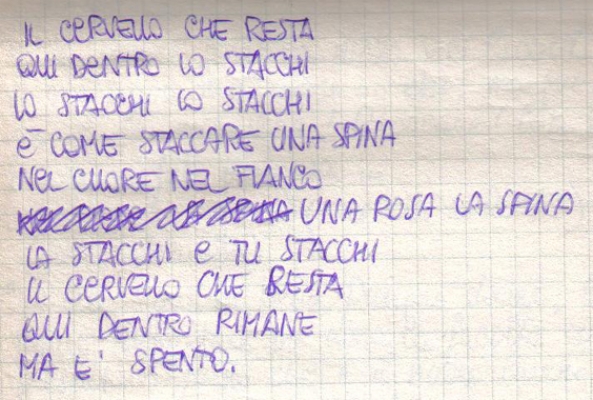 IL CERVELLO CHE RESTA
QUI DENTRO LO STACCHI
LO STACCHI LO STACCHI
È COME STACCARE UNA SPINA
NEL CUORE NEL FIANCO
UNA ROSA LA SPINA
LA STACCHI E TU STACCHI
IL CERVELLO CHE RESTA
QUI DENTRO RIMANE
MA E' SPENTO.